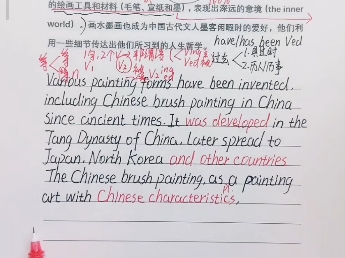 的绘画工具和材料(毛笔、宣纸和墨),表现出深远的意境(the inner
world)。画水墨画也成为中国古代文人墨客闲暇时的爱好,他们利
用一些细节传达出他们所习到的人生哲学。 have/has been Ved
Various painting forms have been invented,
including Chinese brush painting in China
since cancient times. It was developed in the
Tang Dynasty of China. Later spread to
Japan, North Korea and other countries
The Chinese brush painting, as a painting
art with Chinese characteristics.